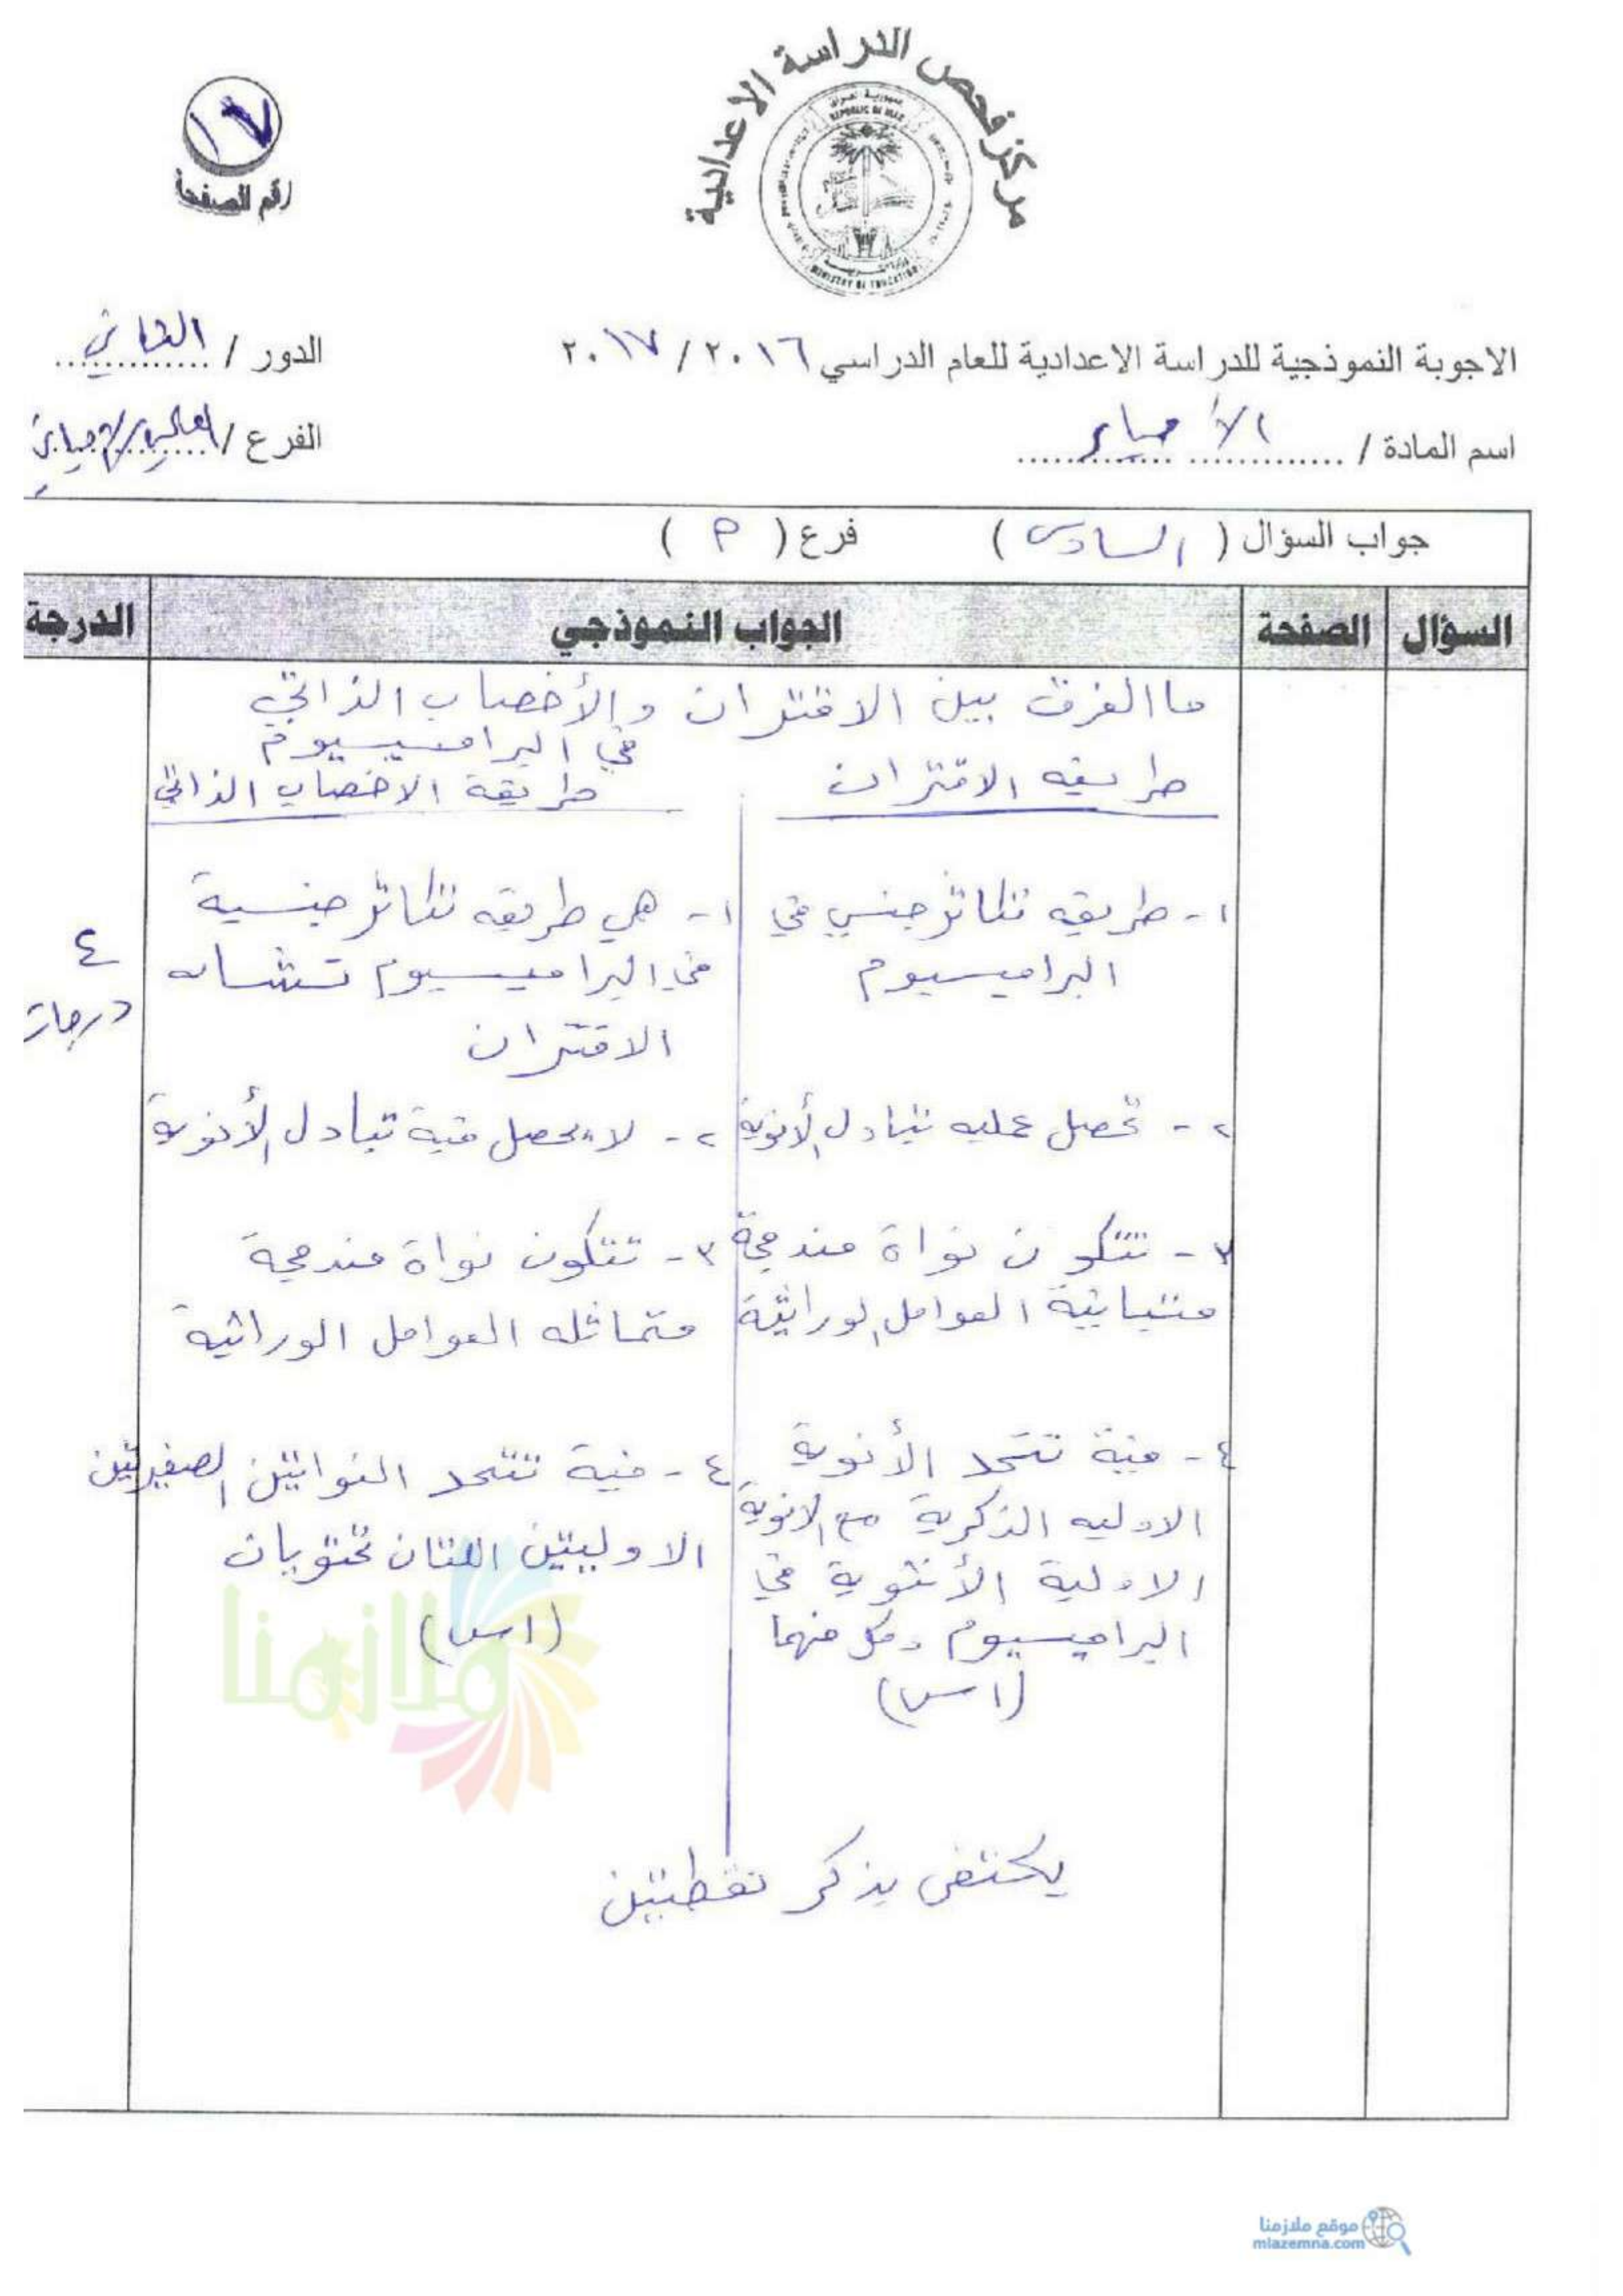 مركز فحص الدراسة الاعدادية
جمهورية العراق
REPUBLIC OF IRAQ
MINISTRY OF EDUCATION
١٧
رقم الصفحة
الاجوبة النموذجية للدراسة الاعدادية للعام الدراسي ٢٠١٦ / ٢٠١٧
الدور / الثاني
اسم المادة / الأحياء
الفرع / الاحيائي
جواب السؤال ( السادس ) فرع ( P )
السؤال الصفحة الجواب النموذجي الدرجة
ما الفرق بين الاقتران والأخصاب الذاتي
في البراميسيوم
طريقه الاقتران
طريقة الاخصاب الذاتي
١- طريقه تكاثر جنسي في
البراميسيوم
١- هي طريقه تكاثر جنسية
في البراميسيوم تشابه
الاقتران
٤
درجات
٢- تحصل عمليه تبادل الأنوية
٢- لا يحصل فية تبادل الأنوية
٣- تتكون نواة مندمجة
متباينة العوامل الوراثية
٣- تتكون نواة مندمجة
متماثله العوامل الوراثيه
٤- فية تتحد الأنوية
الاوليه الذكرية مع الانوية
الاولية الأنثوية في
البراميسيوم وكل منهما
(١س)
٤- فية تتحد النواتين الصغيرتين
الاوليتين اللتان تحتويان
(١س)
يكتفى بذكر نقطتين
ملازمنا
موقع ملازمنا
mlazemna.com